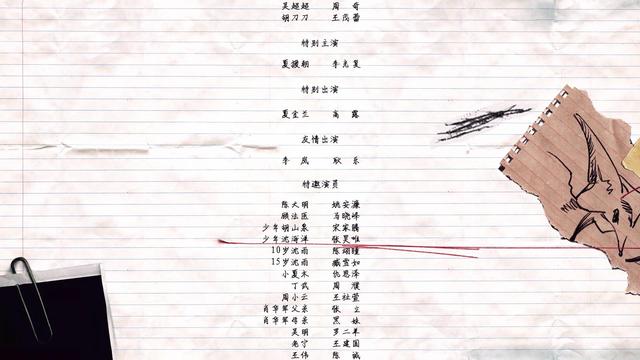 吴婭婭 周奇
胡刀刀 王茂蕾
特别主演
夏援朝 李光复
特别出演
夏金兰 高露
友情出演
李岚 耿乐
特邀演员
陈大明 姚安濂
顾法医 马晓峰
少年胡山泉 宋家腾
少年沈海洋 张昊唯
10岁沈雨 陈翊曈
15岁沈雨 臧雪如
小夏木 仇恩泽
丁武 周濮
周小云 王杜萱
肖华军父亲 张立
肖华军母亲 黑妹
吴明 罗二羊
老宁 王建国
王伟 陈诚